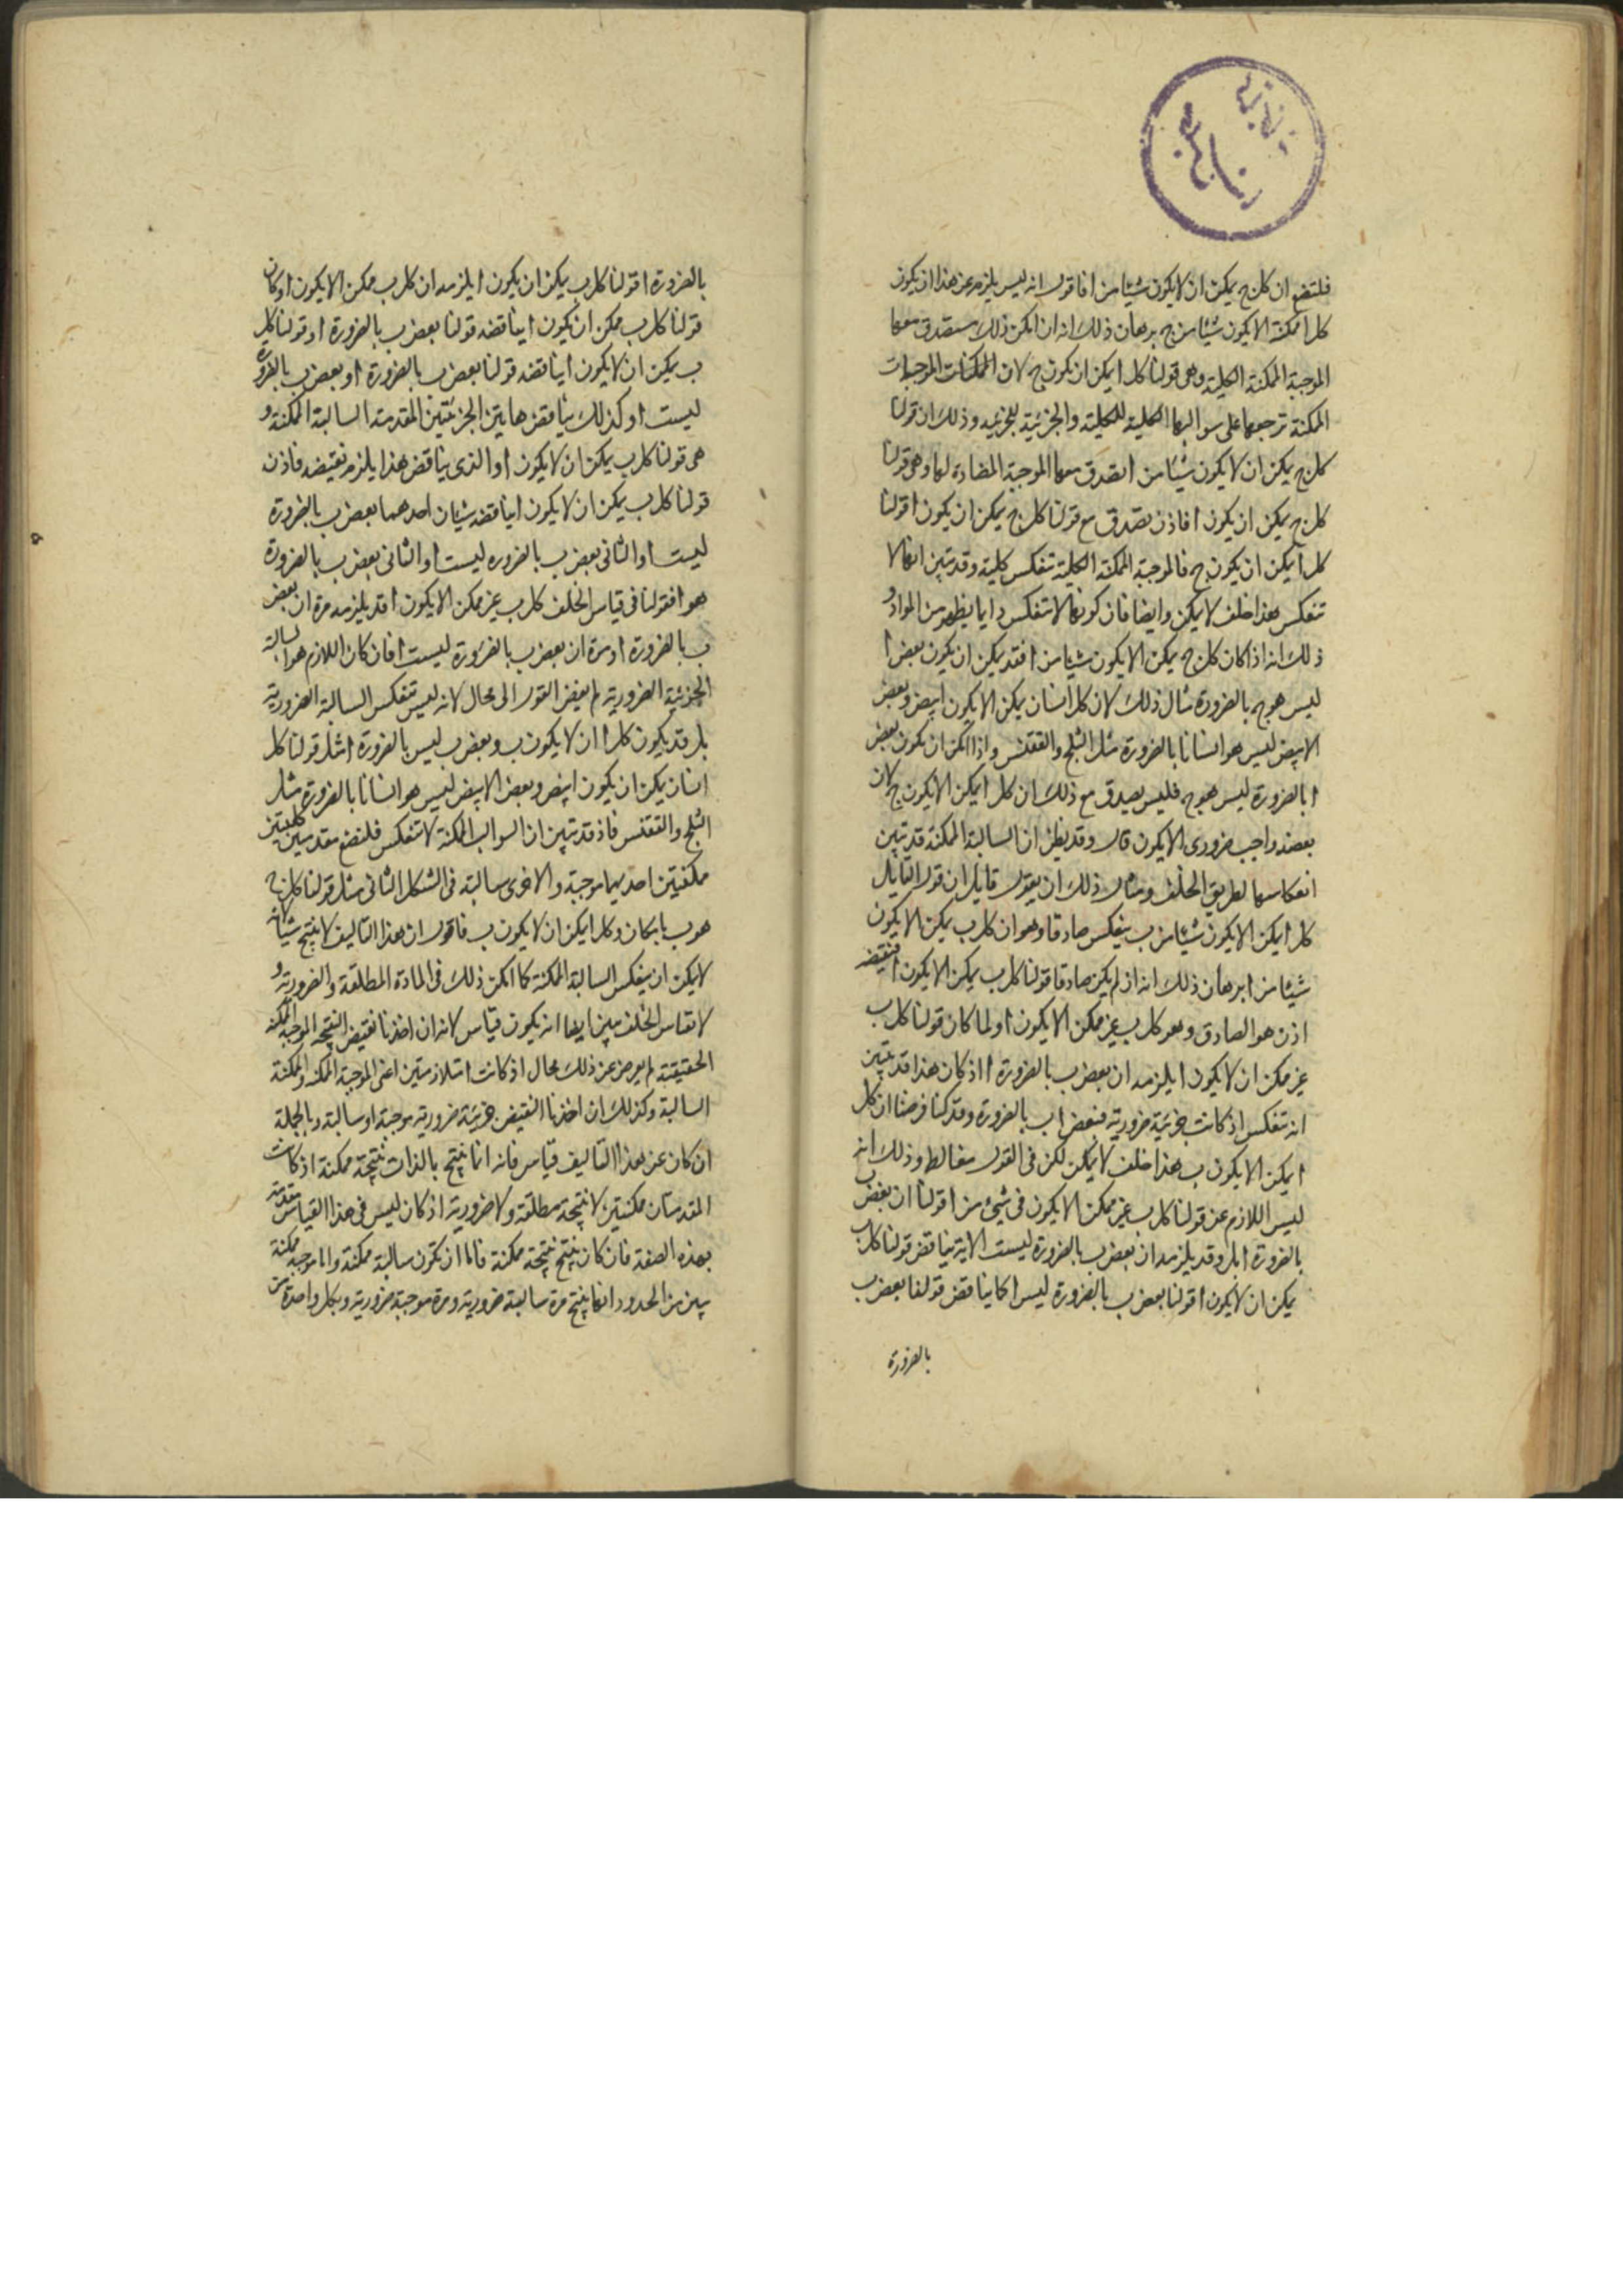 فلتضع ان كل ج يمكن ان لا يكون شيئا من ا فاقول انه ليس يلزم عن هذا ان يكون
كل ا ممكنة الا يكون شيئا من ج برهان ذلك انه ان امكن ذلك ستصدق معها
الموجبة الممكنة الكلية وهى قولنا كل ا يمكن ان يكون ج لان الممكنات الموجبات
الممكنة ترجعها على سوالبها الكلية للكلية والجزئية للجزئيه وذلك ان قولنا
كل ج يمكن ان لا يكون شيئا من ا تصدق معها الموجبة المضادة لها وهى قولنا
كل ج يمكن ان يكون ا فاذن تصدق مع قولنا كل ج يمكن ان يكون ا قولنا
كل ا يمكن ان يكون ج فالموجبة الممكنة الكلية تنعكس كلية وقد تبين انها لا
تنعكس هذا خلف لا يمكن وايضا فان كونها لا تنعكس دايما يظهر من المواد و
ذلك انه اذا كان كل ج يمكن الا يكون شيئا من ا فقد يمكن ان يكون بعض ا
ليس هو ج بالضرورة مثال ذلك لان كل انسان يمكن الا يكون ابيض وبعض
الابيض ليس هو انسانا بالضرورة مثل الثلج والققنس واذا امكن ان يكون بعض
ا بالضرورة ليس هو ج فليس يصدق مع ذلك ان كل ا يمكن الا يكون ج لان
بعضه واجب ضرورى الا يكون قال وقد يظن ان السالبة الممكنة قد تبين
انعكاسها بطريق الخلف ومثال ذلك ان يقول قايل ان قول القايل
كل ا يمكن الا يكون شيئا من ب ينعكس صادقا وهو ان كل ب يمكن الا يكون
شيئا من ا برهان ذلك انه ان لم يكن صادقا قولنا كل ب يمكن الا يكون ا فنقيضه
اذن هو الصادق وهو كل ب غير ممكن الا يكون ا ولما كان قولنا كل ب
غير ممكن ان لا يكون ا يلزمه ان بعض ب بالضرورة ا اذ كان هذا قد تبين
انه تنعكس اذ كانت جزئية ضرورية فبعض ا ب بالضرورة وقد كنا فرضنا ان كل
ا يمكن الا يكون ب هذا خلف لا يمكن لكن فى القول مغالط وذلك انه
ليس اللازم عن قولنا كل ب غير ممكن الا يكون فى شئ من ا قولنا ان بعض ب
بالضرورة ا بل وقد يلزمه ان بعض ب بالضرورة ليست ا لانه يناقض قولنا كل ب
يمكن ان لا يكون ا قولنا بعض ب بالضرورة ليس ا كما يناقض قولنا بعض ب
بالضرورة
بالضرورة ا قولنا كل ب يمكن ان يكون ا يلزمه ان كل ب ممكن الا يكون ا وكان
قولنا كل ب ممكن ان يكون ا يناقضه قولنا بعض ب بالضرورة ا وقولنا كل
ب يمكن ان لا يكون ا يناقضه قولنا بعض ب بالضرورة ا وبعض ب بالضرورة
ليست ا وكذلك يناقض هايتن الجزئيتين المقدمة السالبة الممكنة و
هى قولنا كل ب يمكن ان لا يكون ا والذى يناقض هذا يلزم نقيضه فاذن
قولنا كل ب يمكن ان لا يكون ا يناقضه شيئان احدهما بعض ب بالضرورة
ليست ا والثانى بعض ب بالضروره ليست ا والثانى بعض ب بالضرورة
هو ا فقولنا فى قياس الخلف كل ب غير ممكن الا يكون ا قد يلزمه مرة ان بعض
ب بالضرورة ا ومرة ان بعض ب بالضرورة ليست ا فان كان اللازم هو السالبة
الجزئية الضرورية لم يفض القول الى محال لانه ليس تنعكس السالبة الضرورية
بل قد يكون كل ا ان لا يكون ب وبعض ب ليس بالضرورة ا مثل قولنا كل
انسان يمكن ان يكون ابيض وبعض الابيض ليس هو انسانا بالضرورة مثل
الثلج والققنس فاذ قد تبين ان السوالب الممكنة لا تنعكس فلنضع مقدمتين كليتين
ممكنتين احديهما موجبة والاخرى سالبة فى الشكل الثانى مثل قولنا كل ج
هو ب بامكان وكل ا يمكن ان لا يكون ب فاقول ان هذا التاليف لا ينتج شيئا لانه
لا يمكن ان ينعكس السالبة الممكنة كما امكن ذلك فى المادة المطلقة والضرورية و
لا بقياس الخلف يبين ايضا انه يكون قياس لانه ان اخذنا نقيض النتيجه الموجبة الممكنة
الحقيقية لم يعرض عن ذلك محال اذ كانت متلازمتين اعنى الموجبة الممكنه والممكنة
السالبة وكذلك ان اخذنا النقيض جزئية ضرورية موجبة او سالبة وبالجملة
ان كان عن هذا التاليف قياس فانه انما ينتج بالذات نتيجة ممكنة اذ كانت
المقدمتان ممكنتين لا نتيجة مطلقة ولا ضرورية اذ كان ليس فى هذا القياس مقدمة
بهذه الصفة فان كان ينتج نتيجة ممكنة فاما ان تكون سالبة ممكنة واما موجبة ممكنة
يبين من الحدود انها ينتج مرة سالبة ضرورية ومرة موجبة ضرورية وبكل واحدة من